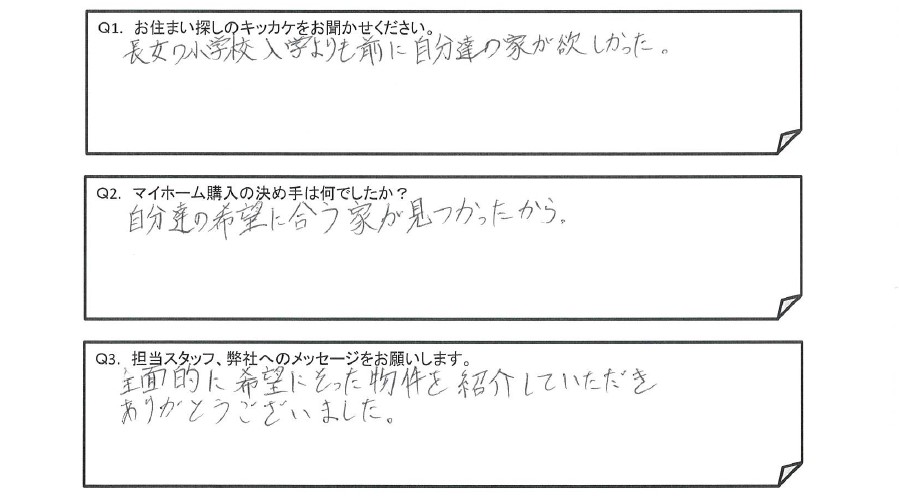 Q1. お住まい探しのキッカケをお聞かせください。
長女の小学校入学よりも前に自分達の家が欲しかった。
Q2. マイホーム購入の決め手は何でしたか？
自分達の希望に合う家が見つかったから。
Q3. 担当スタッフ、弊社へのメッセージをお願いします。
全面的に希望にそった物件を紹介していただき
ありがとうございました。